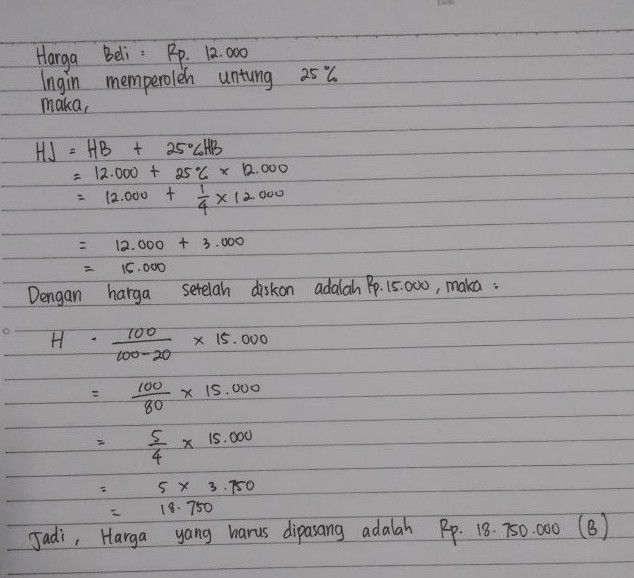 Harga Beli = Rp. 12.000
Ingin memperoleh untung 25%
maka,
HJ = HB + 25% HB
= 12.000 + 25% × 12.000
= 12.000 + 1/4 × 12.000
= 12.000 + 3.000
= 15.000
Dengan harga setelah diskon adalah Rp. 15.000, maka :
H = 100/(100-20) × 15.000
= 100/80 × 15.000
= 5/4 × 15.000
= 5 × 3.750
= 18.750
Jadi, Harga yang harus dipasang adalah Rp. 18.750.000 (B)